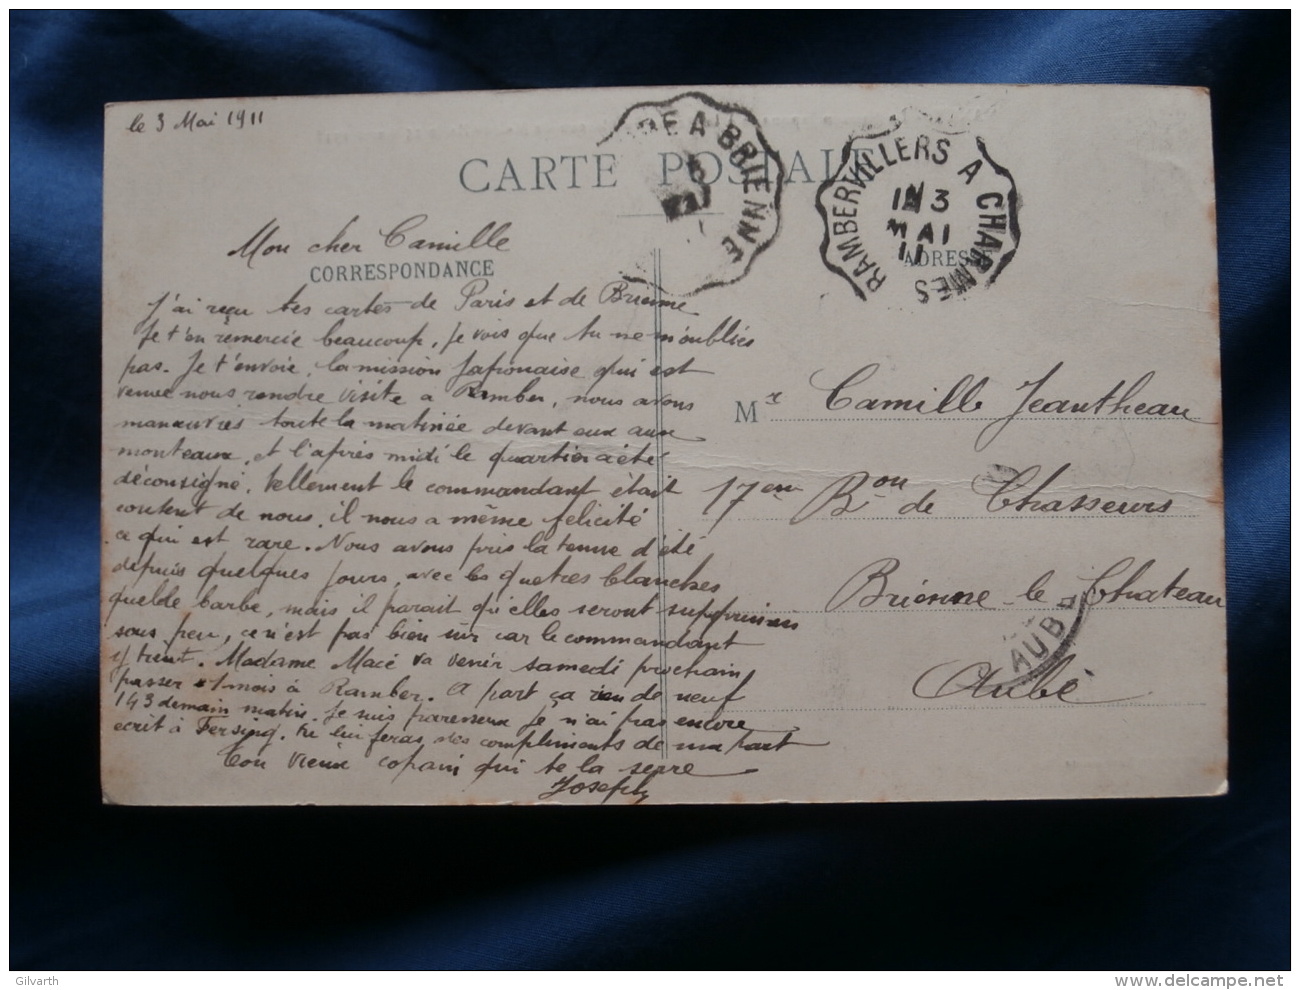 le 3 Mai 1911
CARTE POSTALE
RE A BRIENNE
RAMBERVILLERS A CHARMES
3
MAI
11
Mon cher Camille
CORRESPONDANCE
ADRESSE
J'ai reçu tes cartes de Paris et de Brienne
Je t'en remercie beaucoup, je vois que tu ne m'oublies
pas. Je t'envoie la mission Japonaise qui est
venue nous rendre visite a Ramber, nous avons
manœuvrés toute la matinée devant eux aux
monteaux, et l'après midi le quartier a été
déconsigné. tellement le commandant était
content de nous, il nous a même félicité
ce qui est rare. Nous avons pris la tenue d'été
depuis quelques jours, avec les guetres blanches
quelde barbe, mais il parait qu'elles seront supprimées
sous peu, ce n'est pas bien sûr car le commandant
y tient. Madame Macé va venir samedi prochain
passer 1 mois à Ramber. A part ça rien de neuf
143 demain matin. Je suis paresseux je n'ai pas encore
écrit à Fersing. tu lui feras mes compliments de ma part
Ton vieux copain qui te la serre
Joseph
Mr Camille Jeantheau
17em Bon de Chasseurs
Brienne-le-Chateau
Aube
AUBE
Gilvarth
www.delcampe.net